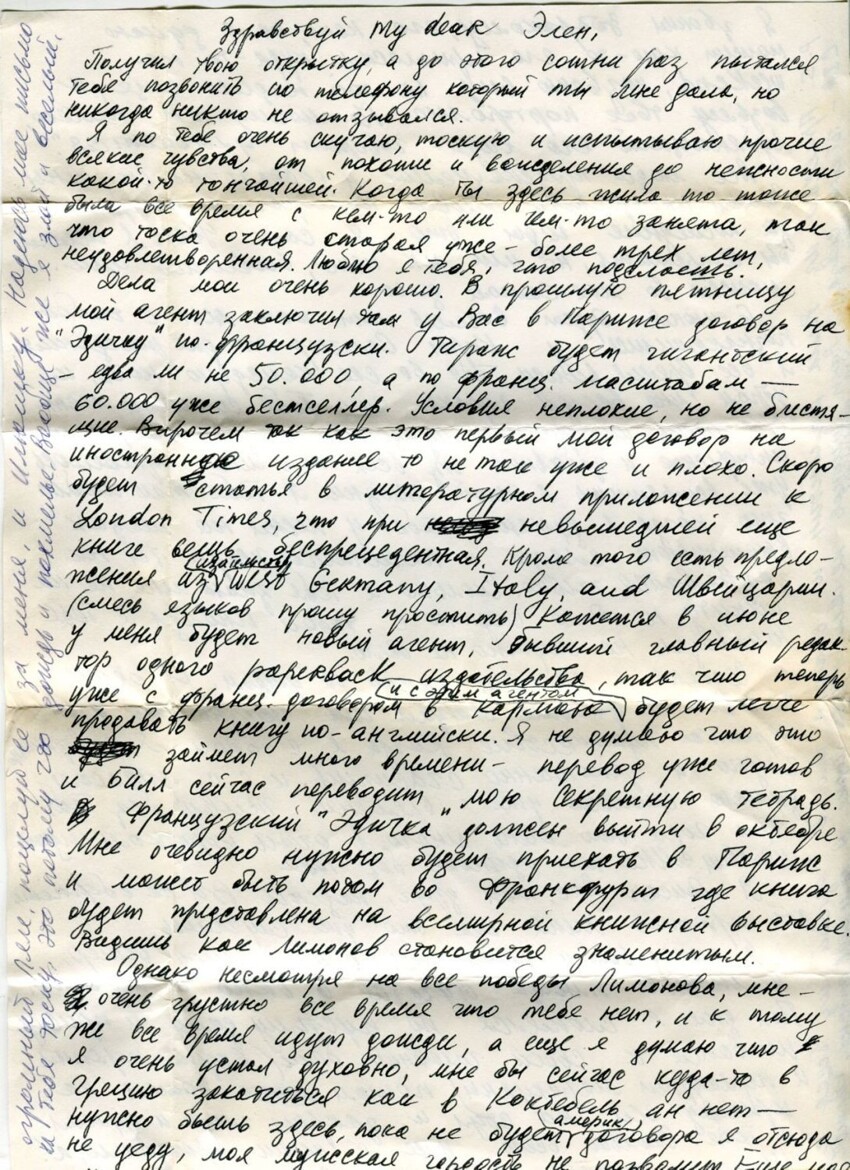 Здравствуй my dear Элен,
Получил твою открытку, а до этого сотни раз пытался
тебе позвонить по телефону который ты мне дала, но
никогда никто не отзывался.
Я по тебе очень скучаю, тоскую и испытываю прочие
всякие чувства, от похоти и вожделения до нежности
какой-то тончайшей. Когда ты здесь жила то тоже
была все время с кем-то или чем-то занята, так
что тоска очень старая уже - более трех лет,
неудовлетворенная. Люблю я тебя,
Дела мои очень хорошо. В прошлую пятницу
мой агент заключил там у Вас в Париже договор на
"Эдичку" по-французски. Тираж будет гигантский
- едва ли не 50.000, а по франц. масштабам —
60.000 уже бестселлер. Условия неплохие, но не блестя-
щие. Впрочем так как это первый мой договор на
иностранное издание то не так уже и плохо. Скоро
будет статья в литературном приложении к
London Times, что при невышедшей еще
книге вещь беспрецедентная. Кроме того есть предло-
жения из издательств West Germany, Italy, and Швейцарии.
(смесь языков прошу простить) Кажется в июне
у меня будет новый агент, бывший главный редак-
тор одного paperback издательства, так что теперь
уже с франц. договором в кармане и с этим агентом будет легче
продавать книгу по-английски. Я не думаю что это
займет много времени - перевод уже готов
и Билл сейчас переводит мою секретную тетрадь.
Французский "Эдичка" должен выйти в октябре
Мне очевидно нужно будет приехать в Париж
и может быть потом во Франкфурт где книга
будет представлена на всемирной книжной выставке.
Видишь как Лимонов становится знаменитым.
Однако несмотря на все победы Лимонова, мне -
очень грустно все время что тебе нет, и к тому
же все время идут дожди, а еще я думаю что
я очень устал духовно, мне бы сейчас куда-то в
Грецию закатиться как в Коктебель ан нет —
нужно быть здесь, пока не будет америк. договора я отсюда
не уеду, моя мужская гордость не позволит
огромный Лен. поцелуй ее за меня, и Надеюсь мое письмо
и тебе это потому что дождь и похмелье. Вообще же я злой и веселый.